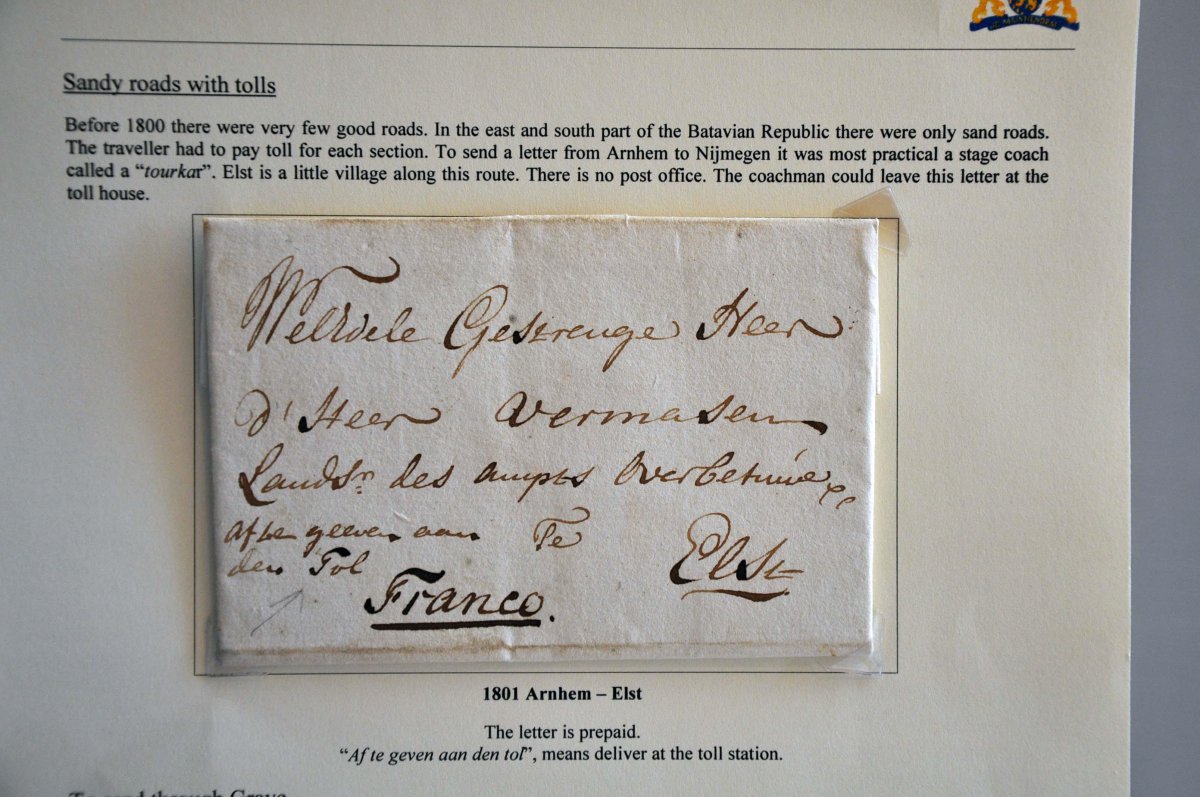 Sandy roads with tolls
Before 1800 there were very few good roads. In the east and south part of the Batavian Republic there were only sand roads.
The traveller had to pay toll for each section. To send a letter from Arnhem to Nijmegen it was most practical a stage coach
called a “tourkar”. Elst is a little village along this route. There is no post office. The coachman could leave this letter at the
toll house.
WelEdele Gestrenge Heer
d' Heer Vermasen
Landsr. des ampts Overbetuwe
af te geeven aan Te
den Tol Elst
Franco.
1801 Arnhem – Elst
The letter is prepaid.
“Af te geven aan den tol”, means deliver at the toll station.